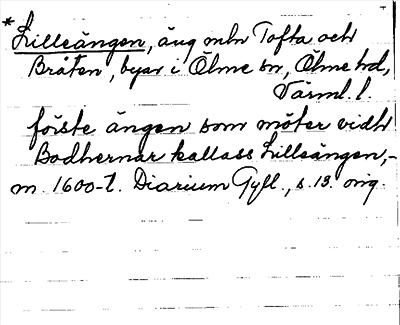 *Lilleängen, äng mln Tofta och
Bråten, byar i Ölme sn, Ölme hd,
Värml. l.
förste ängen som möter vidh
Bodhernar kallass Lilleängen,-
m. 1600-t. Diarium Gyll., s. 13. orig.